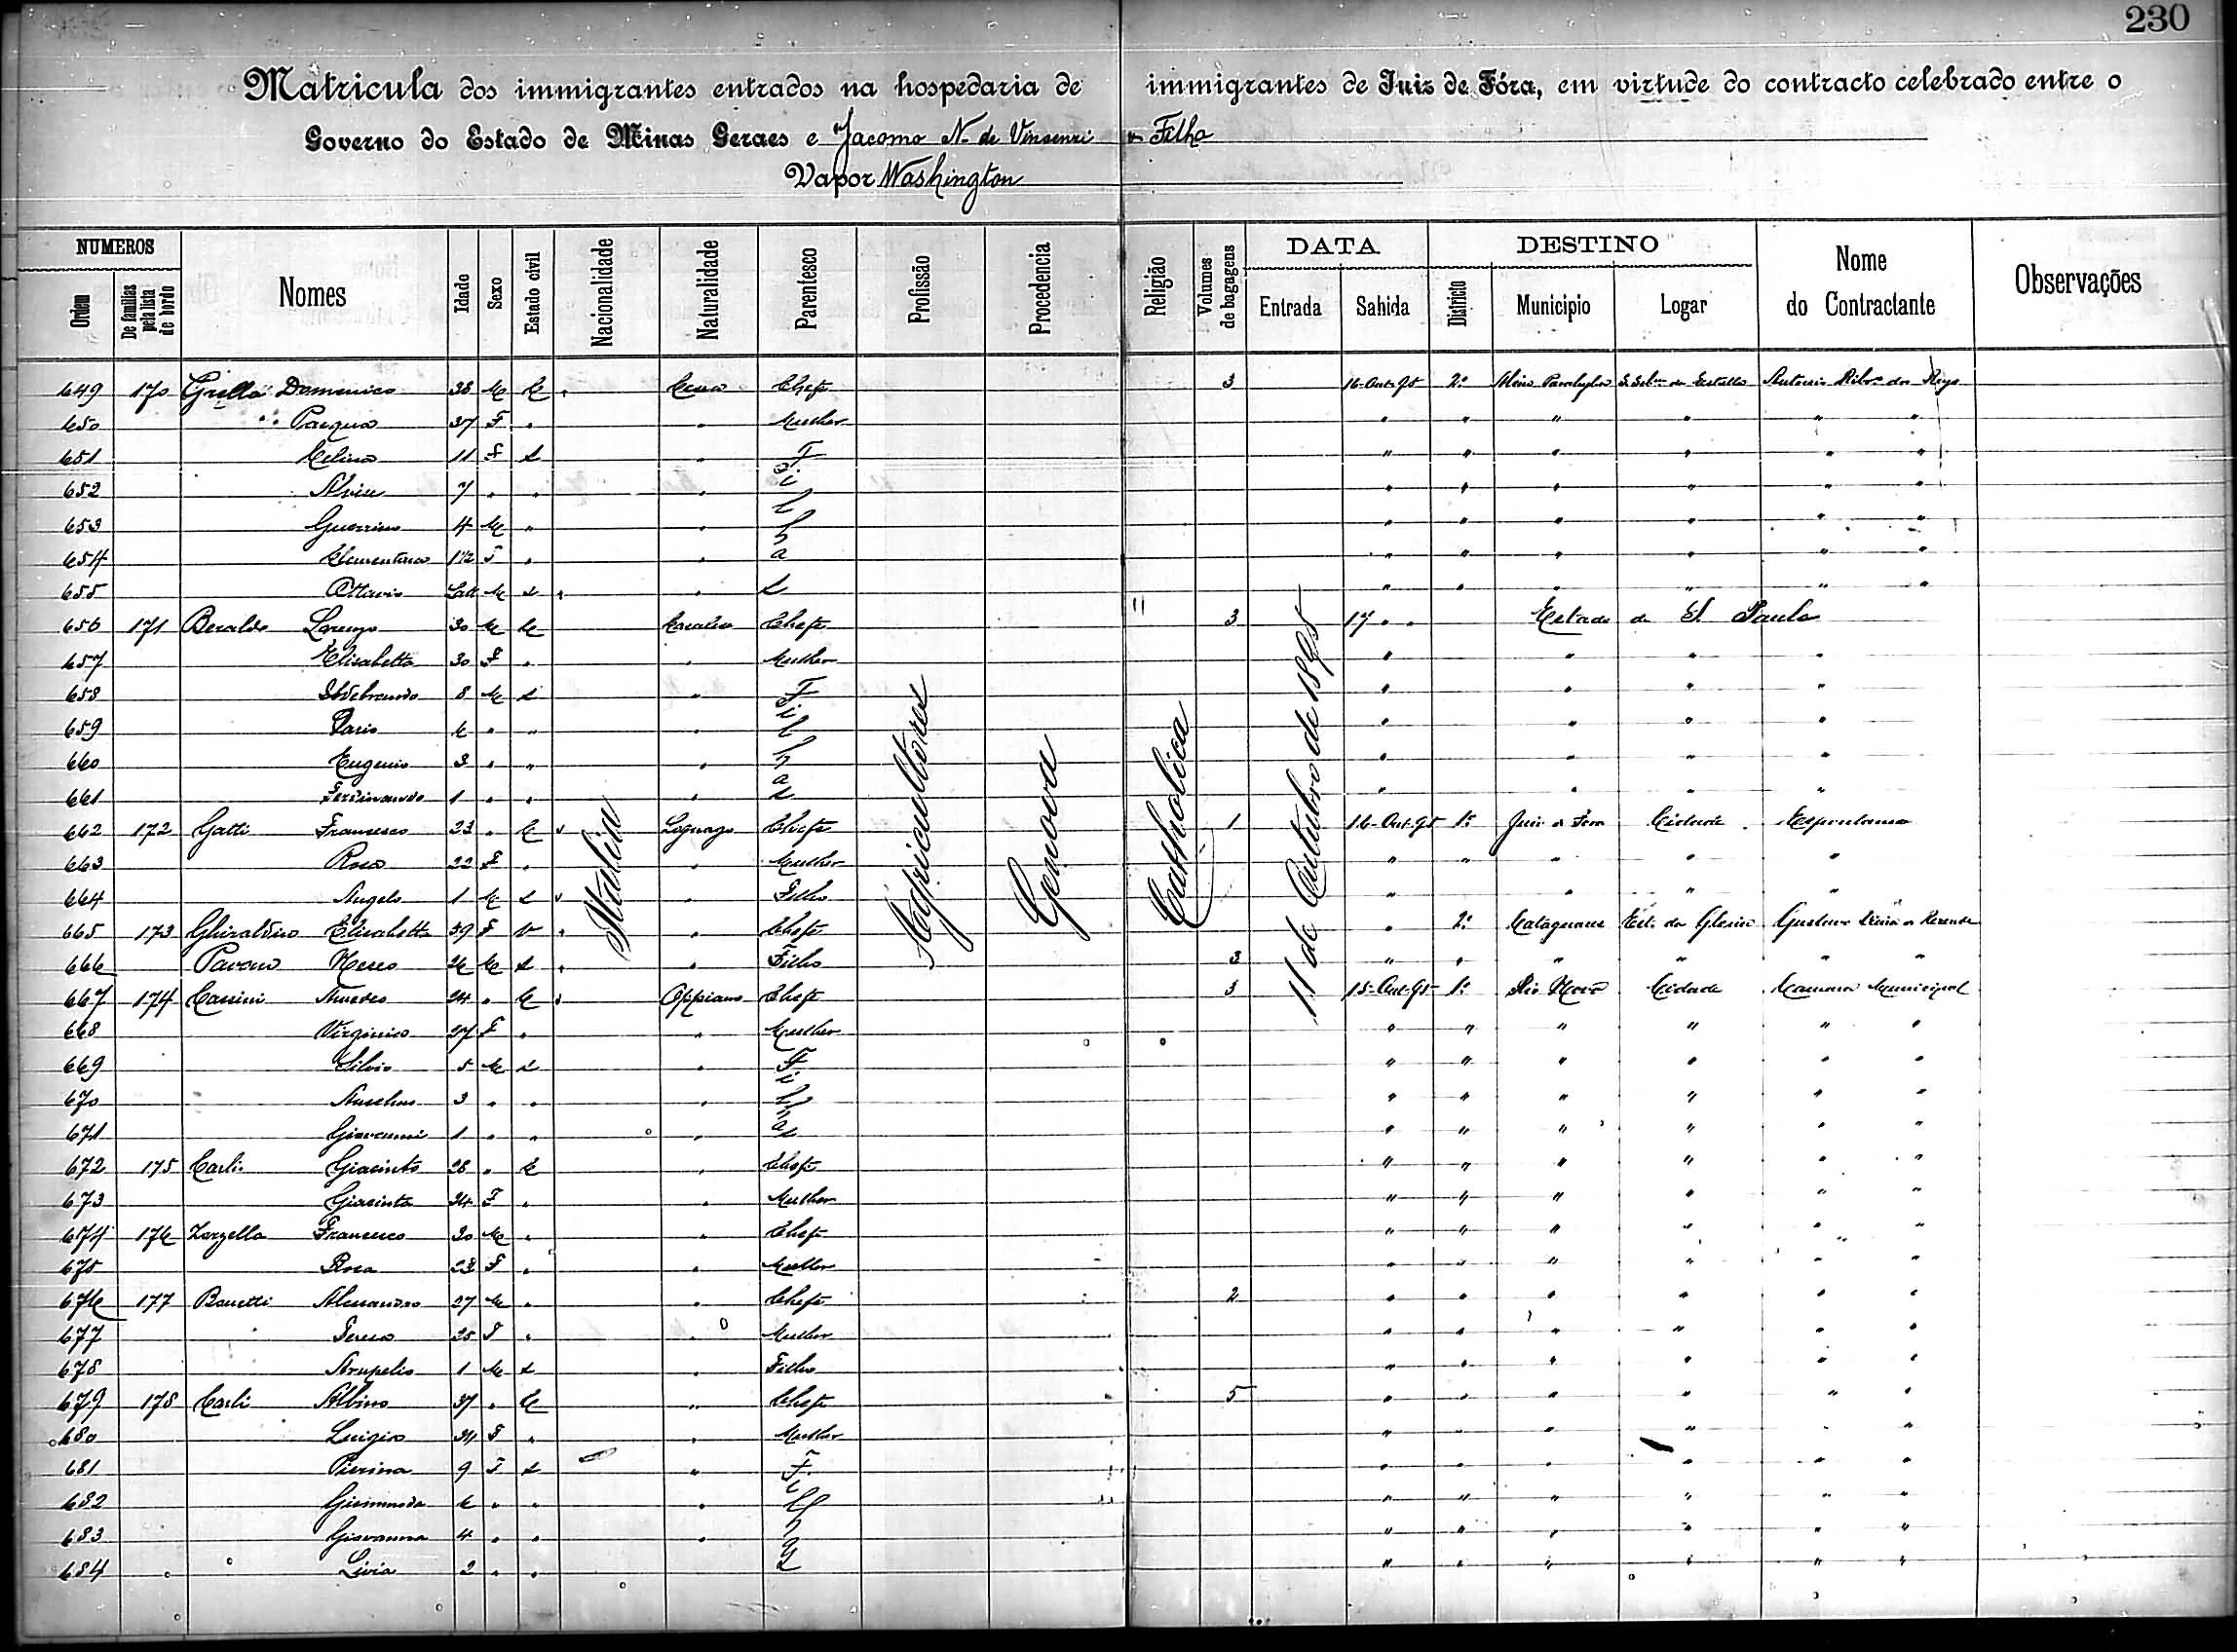 230
Matricula dos immigrantes entrados na hospedaria de immigrantes de Juiz de Fóra, em virtude do contracto celebrado entre o
Governo do Estado de Minas Geraes e Jacomo N. de Vincenzi & Filho
Vapor Washington
NUMEROS
Ordem
De familias pela lista de bordo
Nomes
Idade
Sexo
Estado civil
Nacionalidade
Naturalidade
Parentesco
Profissão
Procedencia
Religião
Volumes de bagagens
DATA
Entrada
Sahida
DESTINO
Districto
Municipio
Logar
Nome do Contractante
Observações
Italia
Agricultores
Genova
Catholica
11 de Outubro de 1895
649 170 Grella Domenico 38 M C Chefe 3 16-Out-95 2º
650 " Pasqua 37 F " " Mulher " " " " " "
651 Celina 11 F S " Filhas " " " " " "
652 7 " " " " " " " " "
653 Guerrino 4 M " " " " " " " "
654 Clementina 1 1/2 F " " " " " " " "
655 Ottavio M S " " " " " " "
656 171 Beraldo Lorenzo 30 M C Chefe 3 17 " " Estado de S. Paulo
657 Elisabetta 30 F " " Mulher " " " "
658 Ildebrando 8 M S " Filhas " " " "
659 Dario 6 " " " " " " "
660 Eugenio 3 " " " " " " "
661 Ferdinando 1 " " " " " " "
662 172 Gatti Francesco 23 " C Legnago Chefe 1 16-Out-95 1º Juiz de Fora Cidade Espontaneo
663 Rosa 22 F " " Mulher " " " " "
664 Angelo 1 M S " Filho " " " "
665 173 Elisabetta 39 F V " Chefe " 2º Cataguazes Est. da Gloria Gustavo de Rezende
666 26 M S " Filho 3 " " " " " "
667 174 Cassini Amedeo 24 " C Oppiano Chefe 3 15-Out-95 1º Rio Novo Cidade Camara Municipal
668 27 F " " Mulher " " " " " "
669 Silvio 5 M S " Filhas " " " " " "
670 Anselmo 3 " " " " " " " " "
671 Giovanni 1 " " " " " " " " "
672 175 Carli Giacinto 28 " C " Chefe " " " " " "
673 Giacinta 24 F " " Mulher " " " " " "
674 176 Zorzella Francesco 30 M " " Chefe " " " " " "
675 Rosa 23 F " " Mulher " " " " " "
676 177 Alessandro 27 M " " Chefe 2 " " " " " "
677 25 F " " Mulher " " " " " "
678 1 M S " Filho " " " " " "
679 178 Carli Albino 37 " C " Chefe 5 " " " " " "
680 Luigia 34 F " " Mulher " " " " " "
681 Pierina 9 F S " Filhas " " " " " "
682 6 " " " " " " " " "
683 Giovanna 4 " " " " " " " " "
684 Livia 2 " " " " " " " "